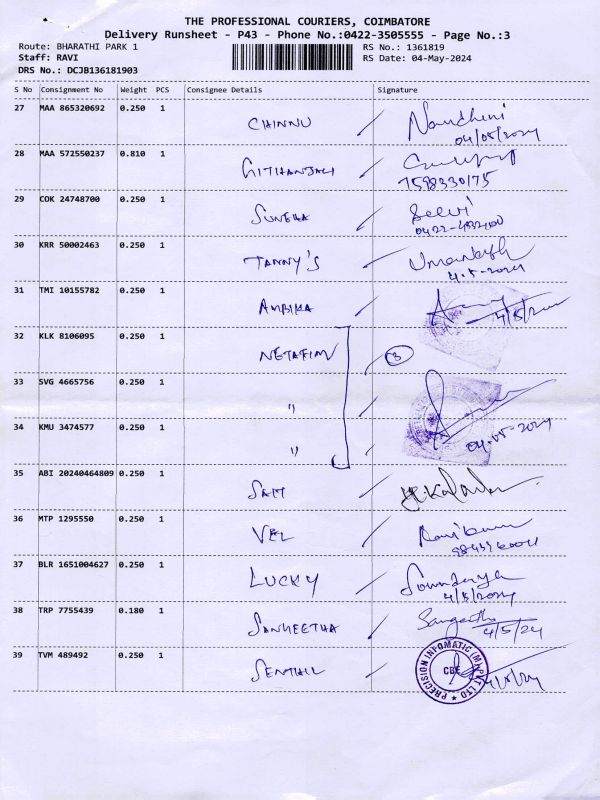 THE PROFESSIONAL COURIERS, COIMBATORE
Delivery Runsheet - P43 - Phone No.:0422-3505555 - Page No.:3
Route: BHARATHI PARK 1 RS No.: 1361819
Staff: RAVI RS Date: 04-May-2024
DRS No.: DCJB136181903
S No Consignment No Weight PCS Consignee Details Signature
27 MAA 865320692 0.250 1 CHINNU Nandhini
04/05/2024
28 MAA 572550237 0.810 1 GITHANJALI
7598330175
29 COK 24748700 0.250 1 SUNEHA Selvi
30 KRR 50002463 0.250 1 TANNY'S
4.5.2024
31 TMI 10155782 0.250 1 AMBIKA
32 KLK 8106095 0.250 1 NETAFIM 3
33 SVG 4665756 0.250 1 "
34 KMU 3474577 0.250 1 "
04.05.2024
35 ABI 20240464809 0.250 1 SAM
36 MTP 1295550 0.250 1 VEL Ravikumar
37 BLR 1651004627 0.250 1 LUCKY Soundarya
4/5/2024
38 TRP 7755439 0.180 1 SANGEETHA Sangeetha
4/5/24
39 TVM 489492 0.250 1 SENTHIL
PRECISION INFOMATIC (M) PVT LTD
CBE